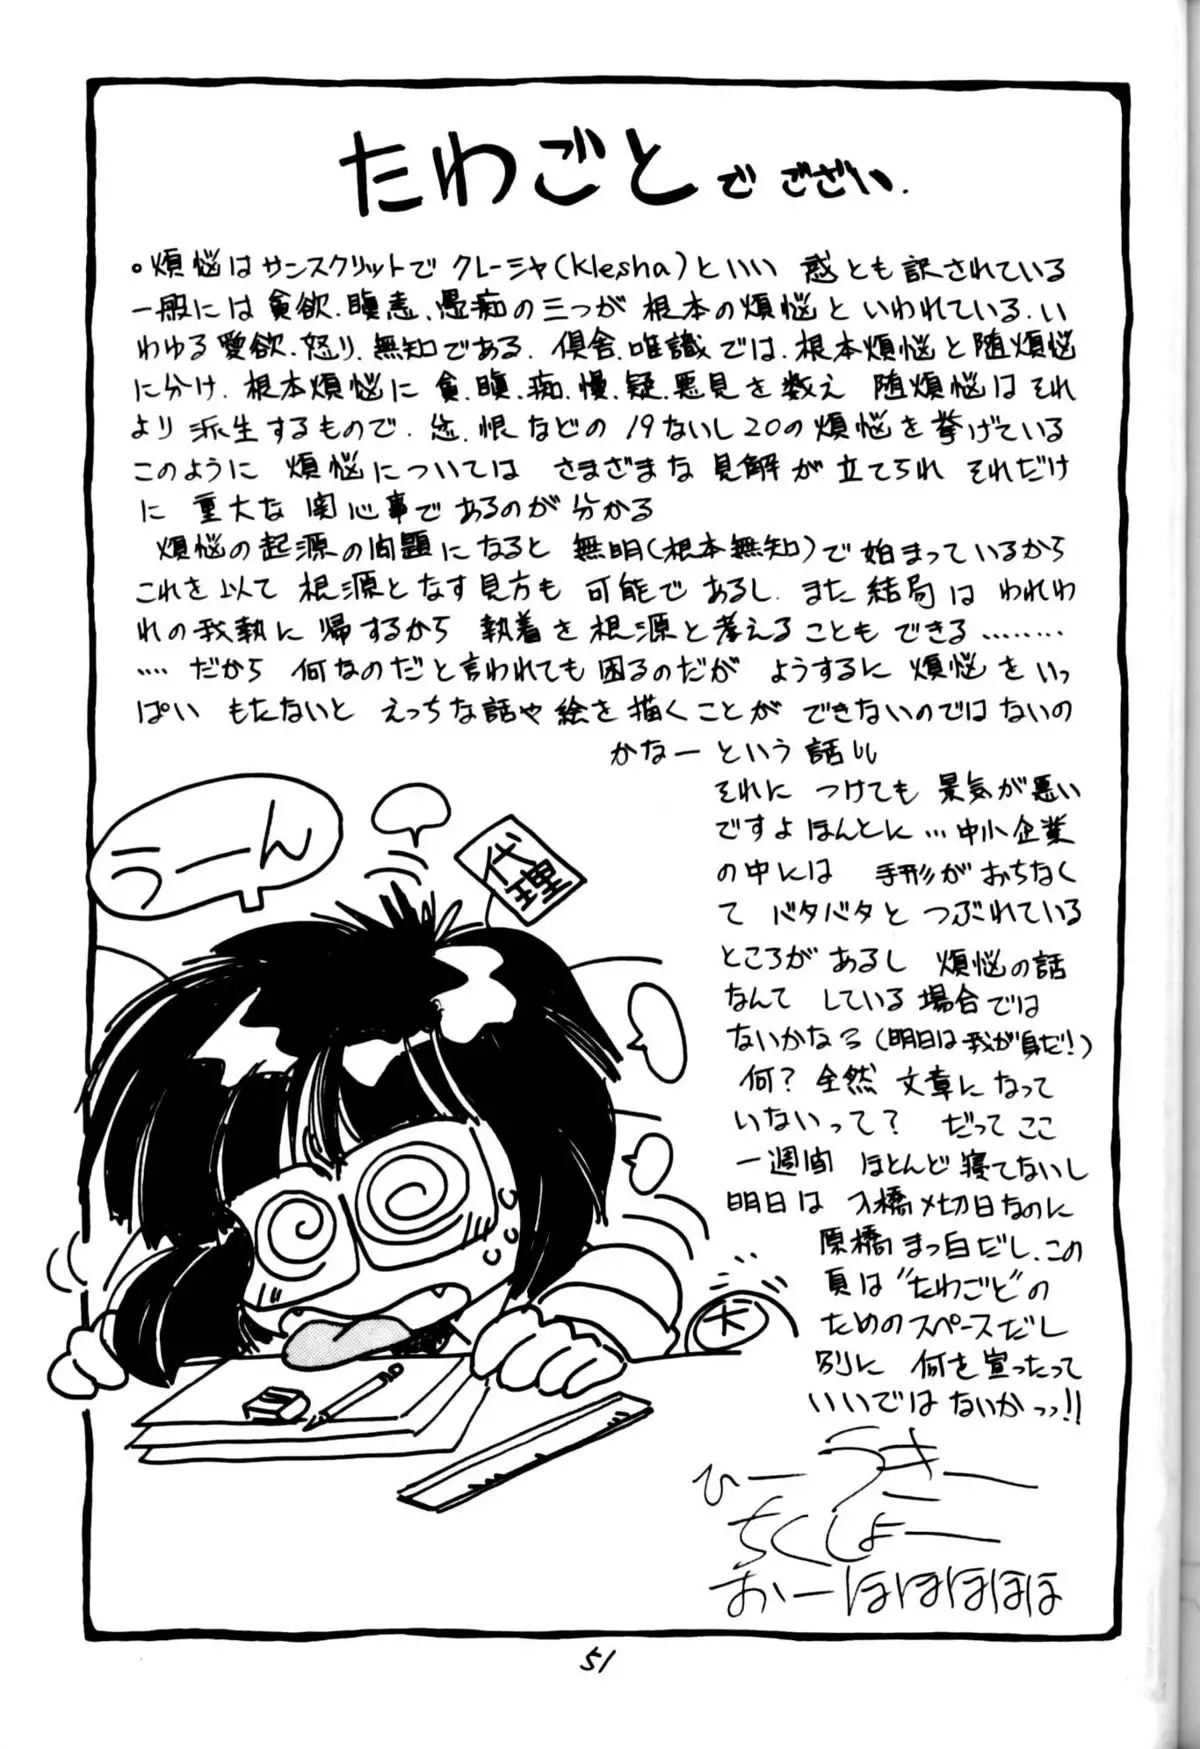 たわごとでござい.
。煩悩はサンスクリットでクレーシャ(Klesha)といい 惑とも訳されている
一般には貪欲.瞋恚.愚痴の三つが根本の煩悩といわれている.い
わゆる愛欲.怒り.無知である.倶舎.唯識では.根本煩悩と随煩悩
に分け.根本煩悩に貪.瞋.痴.慢.疑.悪見を数え 随煩悩はそれ
より派生するもので.忿.恨などの19ないし20の煩悩を挙げている
このように 煩悩については さまざまな見解が立てられ それだけ
に 重大な関心事であるのが分かる
煩悩の起源の問題になると 無明(根本無知)で始まっているから
これを以て 根源となす見方も 可能であるし.また結局は われわ
れの我執に帰するから 執着を根源と考えることもできる………
……だから 何なのだと言われても困るのだが ようするに 煩悩をいっ
ぱい もたないと えっちな話や絵を描くことが できないのではないの
かなー という話
それに つけても 景気が悪い
ですよ ほんとに…中小企業
の中には 手形がおちなく
て バタバタと つぶれている
ところが あるし 煩悩の話
なんて している場合では
ないかなろ(明日は我が身だ!)
何? 全然 文章になって
いないって? だって ここ
一週間 ほとんど寝てないし
明日は 入橋〆切日なのに
原橋まっ白だし.この
頁は"たわごと"の
ためのスペースだし
別に 何を宣ったって
いいではないかっっ!!
ひー うきー
ちくしょー
おーほほほほほ
うーん
代理
大
51